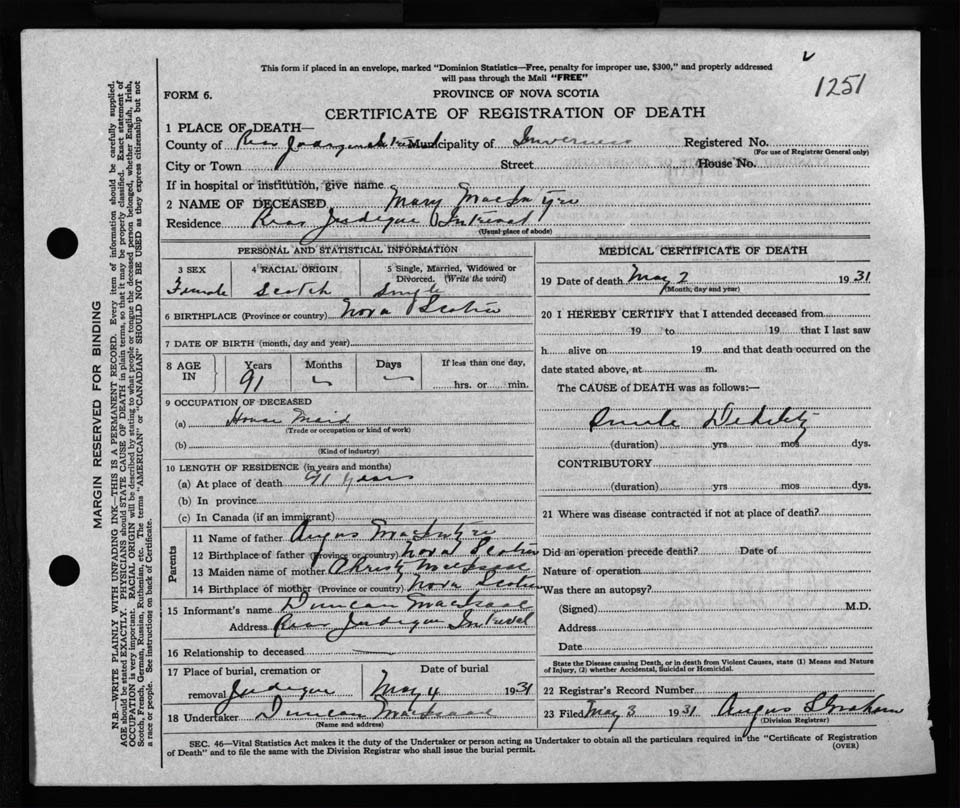 This form if placed in an envelope, marked "Dominion Statistics—Free, penalty for improper use, $300," and properly addressed
will pass through the Mail "FREE"
1251
FORM 6.
PROVINCE OF NOVA SCOTIA
CERTIFICATE OF REGISTRATION OF DEATH
1 PLACE OF DEATH—
County of Rear Municipality of Inverness Registered No.
(For use of Registrar General only)
City or Town Street House No.
If in hospital or institution, give name
2 NAME OF DECEASED Mary MacIntyre
Residence Rear Judique Intreval
(Usual place of abode)
PERSONAL AND STATISTICAL INFORMATION
3 SEX 4 RACIAL ORIGIN 5 Single, Married, Widowed or
Divorced. (Write the word)
Female Scotch Single
6 BIRTHPLACE (Province or country) Nova Scotia
7 DATE OF BIRTH (month, day and year)
8 AGE IN Years Months Days If less than one day,
91 hrs. or min.
9 OCCUPATION OF DECEASED
(a) House Maid
(Trade or occupation or kind of work)
(b)
(Kind of industry)
10 LENGTH OF RESIDENCE (in years and months)
(a) At place of death 91 years
(b) In province
(c) In Canada (if an immigrant)
Parents
11 Name of father Angus MacIntyre
12 Birthplace of father (Province or country) Nova Scotia
13 Maiden name of mother Christy MacIsaac
14 Birthplace of mother (Province or country) Nova Scotia
15 Informant's name Duncan MacIsaac
Address Rear Judique Intreval
16 Relationship to deceased
17 Place of burial, cremation or Date of burial
removal Judique May 4 1931
18 Undertaker Duncan MacIsaac
(Name and address)
MEDICAL CERTIFICATE OF DEATH
19 Date of death May 2 1931
(Month, day and year)
20 I HEREBY CERTIFY that I attended deceased from
19 to 19 that I last saw
h alive on 19 and that death occurred on the
date stated above, at m.
The CAUSE of DEATH was as follows:—
Senile Debility
(duration) yrs mos dys.
CONTRIBUTORY
(duration) yrs mos dys.
21 Where was disease contracted if not at place of death?
Did an operation precede death? Date of
Nature of operation
Was there an autopsy?
(Signed) M.D.
Address
Date
State the Disease causing Death, or in death from Violent Causes, state (1) Means and Nature
of Injury, (2) whether Accidental, Suicidal or Homicidal.
22 Registrar's Record Number
23 Filed May 3 1931 Angus
(Division Registrar)
SEC. 46—Vital Statistics Act makes it the duty of the Undertaker or person acting as Undertaker to obtain all the particulars required in the "Certificate of Registration
of Death" and to file the same with the Division Registrar who shall issue the burial permit.
(OVER)
MARGIN RESERVED FOR BINDING
N.B.—WRITE PLAINLY WITH UNFADING INK—THIS IS A PERMANENT RECORD. Every item of information should be carefully supplied.
AGE should be stated EXACTLY. PHYSICIANS should STATE CAUSE OF DEATH in plain terms, so that it may be properly classified. Exact statement of
OCCUPATION is very important. RACIAL ORIGIN will be described by stating to what people or tongue the deceased person belonged, whether English, Irish,
Scotch, French, German, Russian, Ruthenian, etc. The terms "AMERICAN" or "CANADIAN" SHOULD NOT BE USED as they express citizenship but not
a race or people. See instructions on back of Certificate.